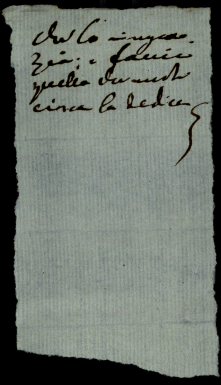 che la ringra-
zia; e faccia
quello che vuole
circa la dedica